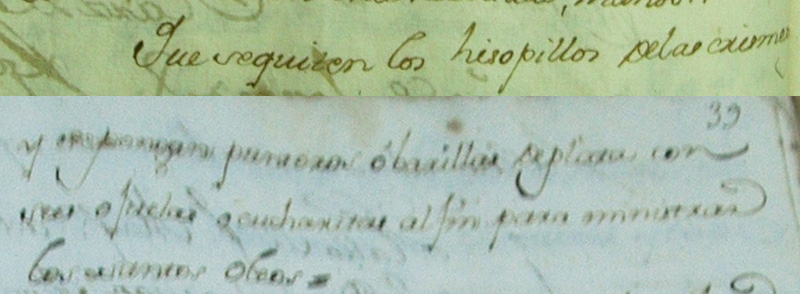 Que se quiten los hisopillos de las crisme
39
y se pongan punteros ó barillas de plata con
sus ofuelas o cucharitas al fin para ministrar
los santos óleos =